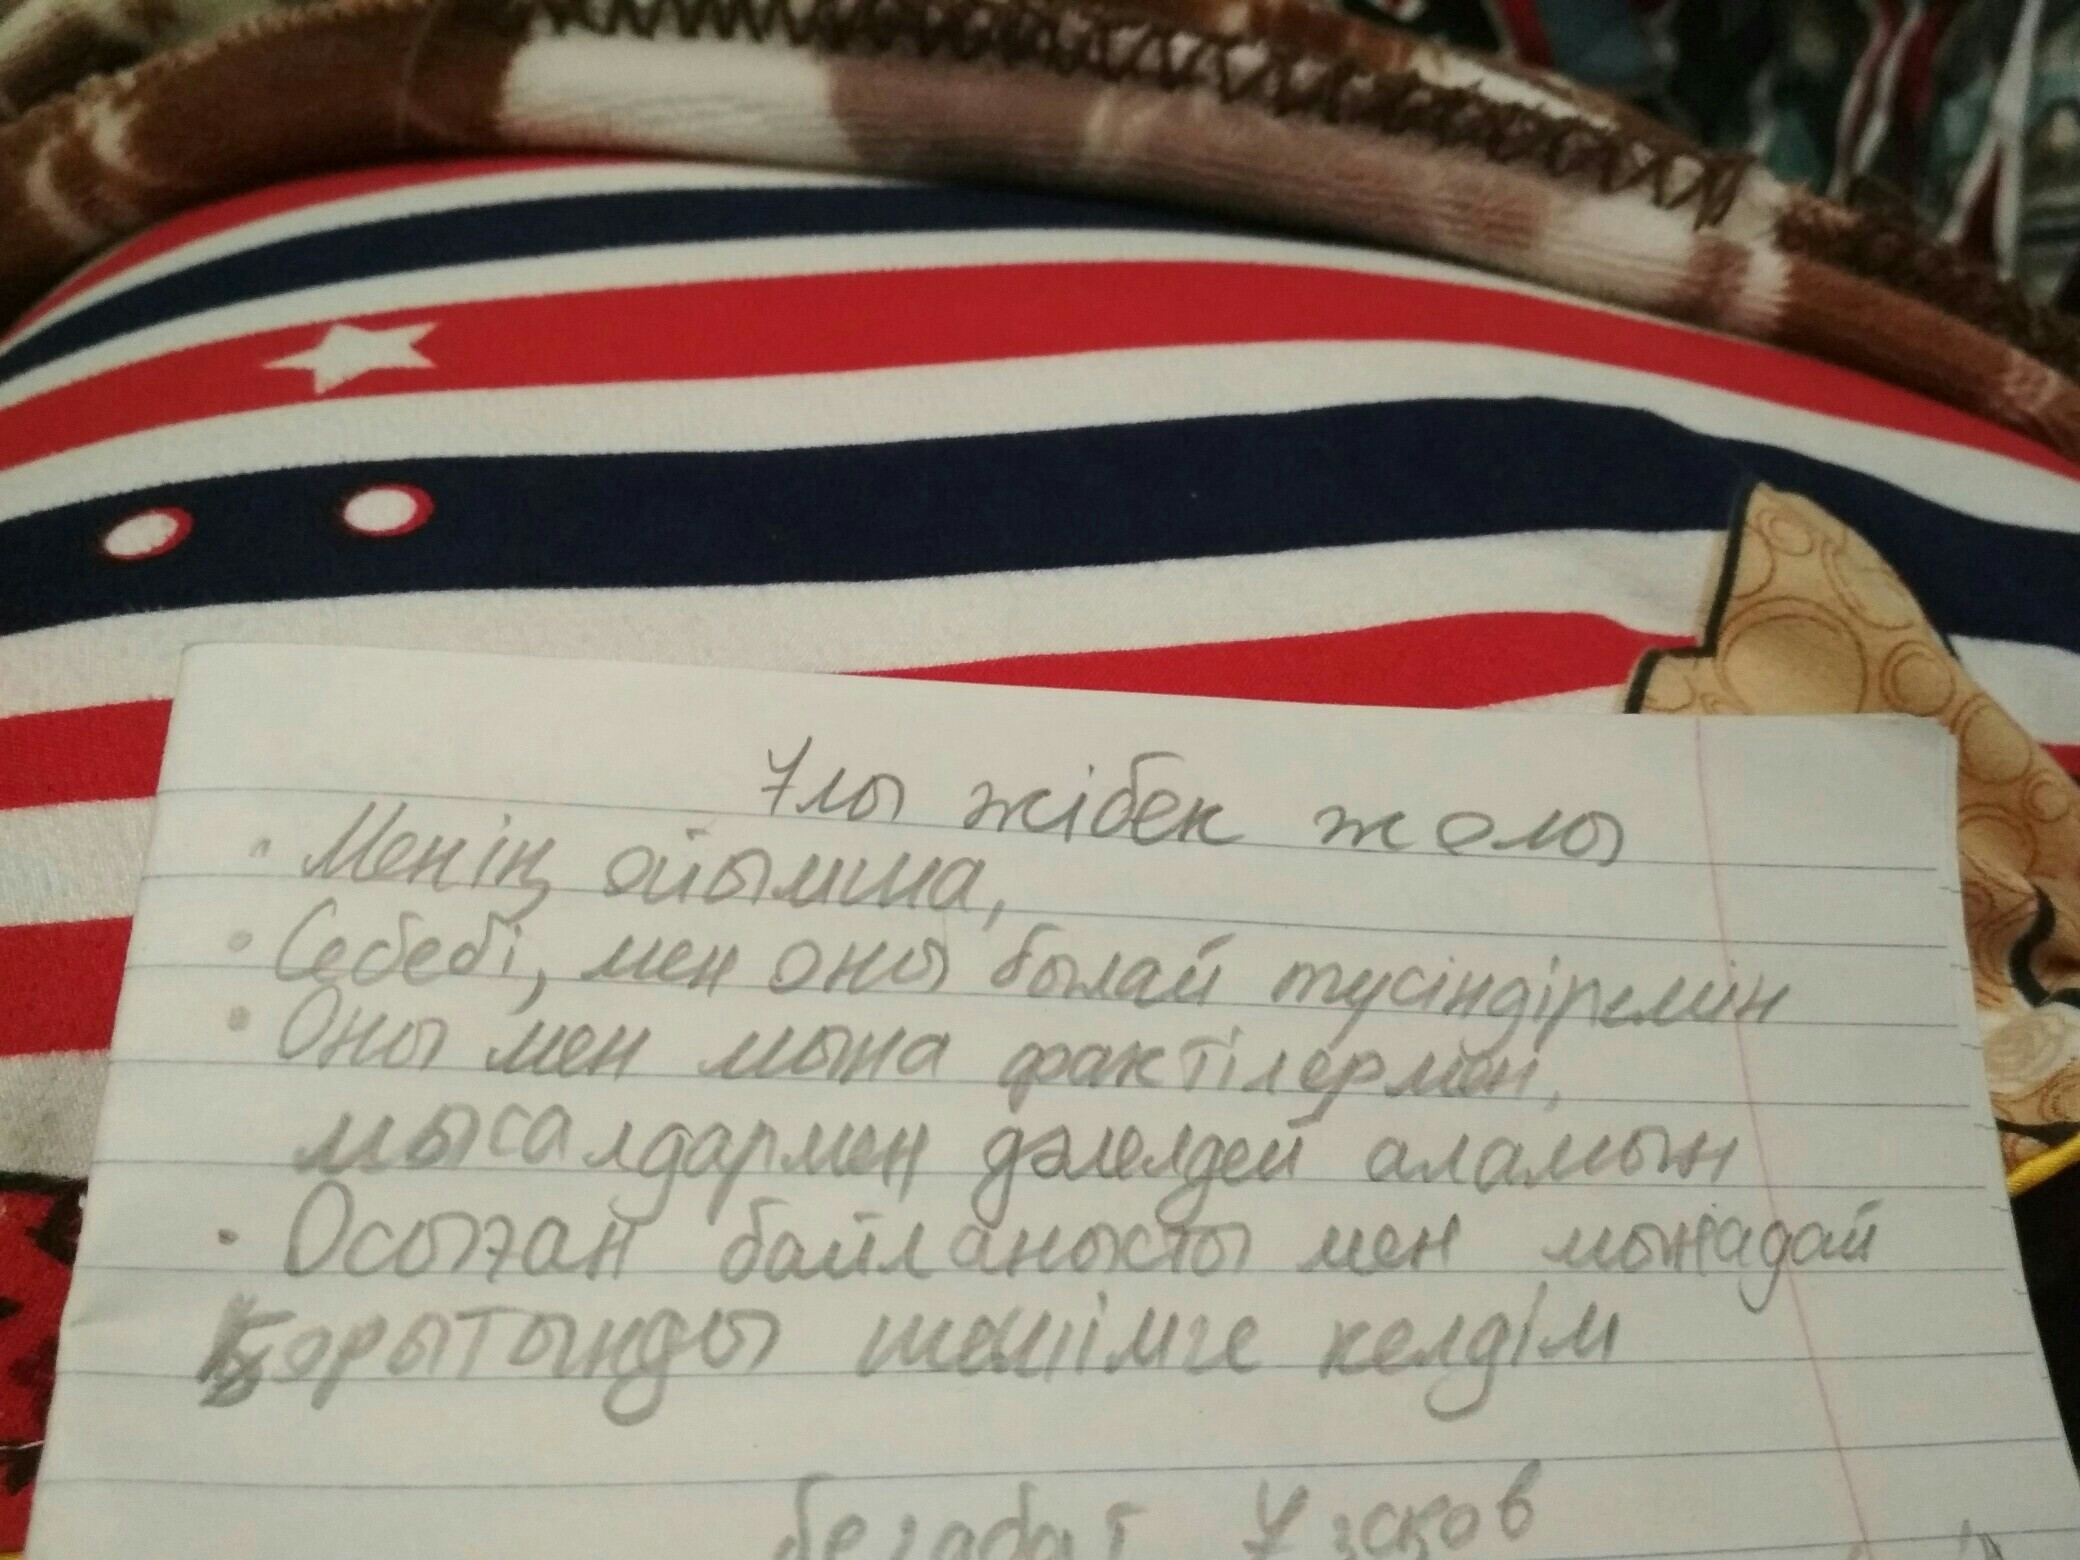 Ұлы жібек жолы
• Менің ойымша,
• Себебі, мен оны былай түсіндіремін
• Оны мен мына фактілермен,
мысалдармен дәлелдей аламын
• Осыған байланысты мен мынадай
қорытынды шешімге келдім